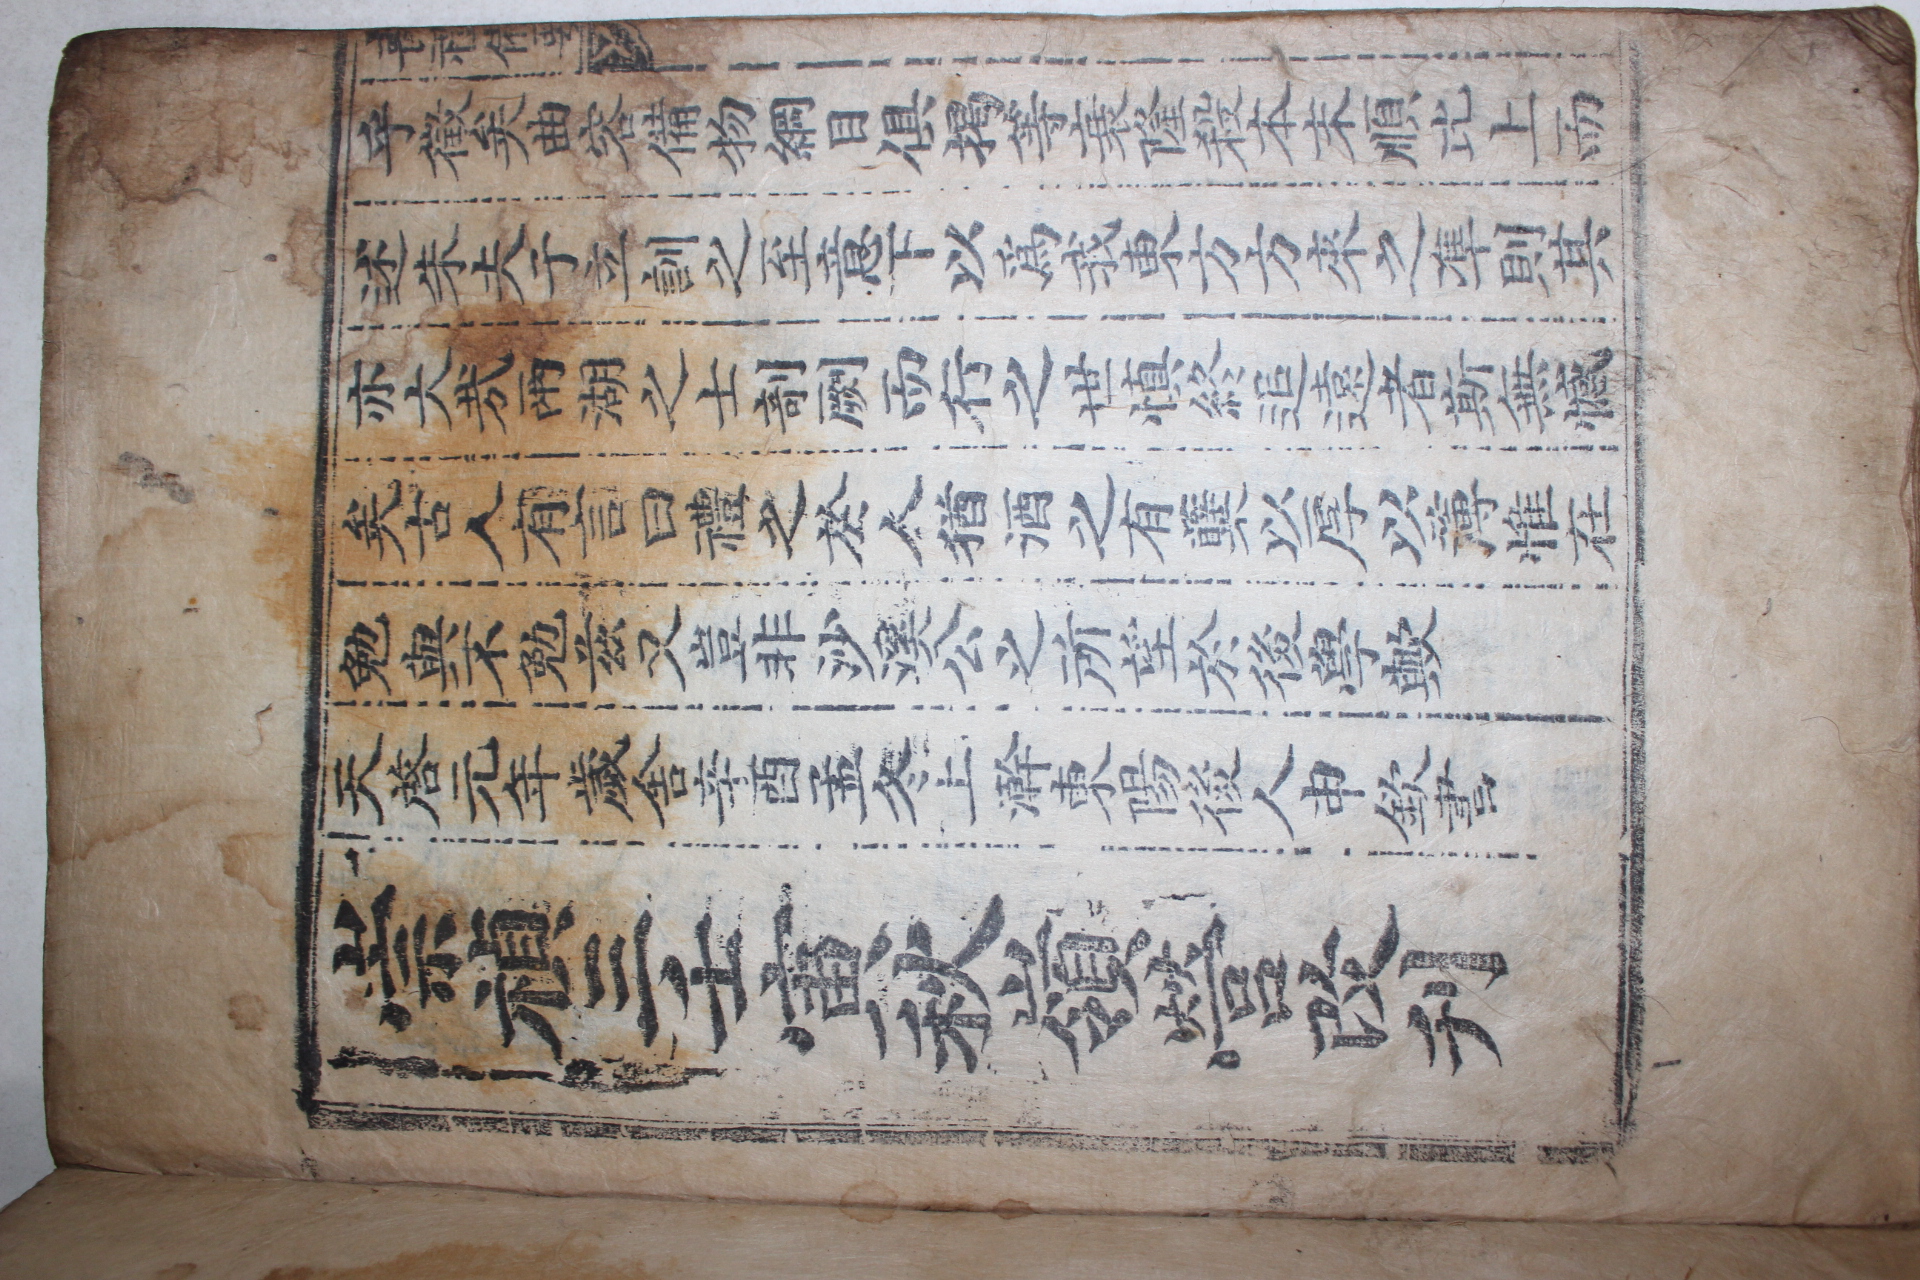 喪禮備要
乎徵矣曲容備物綱目俱揭等衰隆殺本末順比上而
述朱夫子立訓之至意下以爲我東方方來之準則其
亦大哉兩湖之士剞劂而行之世愼終追遠者斯無憾
矣古人有言曰禮之於人猶酒之有糵以厚以薄惟在
勉與不勉茲又豈非沙溪公之所望於後學歟
天啓元年歲舍辛酉孟冬上澣東陽後人申欽書
崇禎三壬寅秋嶺營改刊